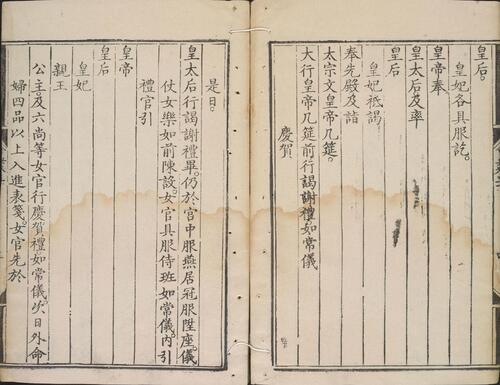 皇后。
皇妃各具服訖。
皇帝奉
皇太后及率
皇后
皇妃祗謁
奉先殿及詣
太宗文皇帝几筵。
大行皇帝几筵前行謁謝禮如常儀
慶賀
是日。
皇太后行謁謝禮畢。仍於宮中服燕居冠服陞座。儀
仗女樂如前陳設。女官具服侍班如常儀。內引
禮官引
皇帝
皇后
皇妃
親王
公主。及六尚等女官行慶賀禮如常儀。次日外命
婦四品以上入進表箋。女官先於